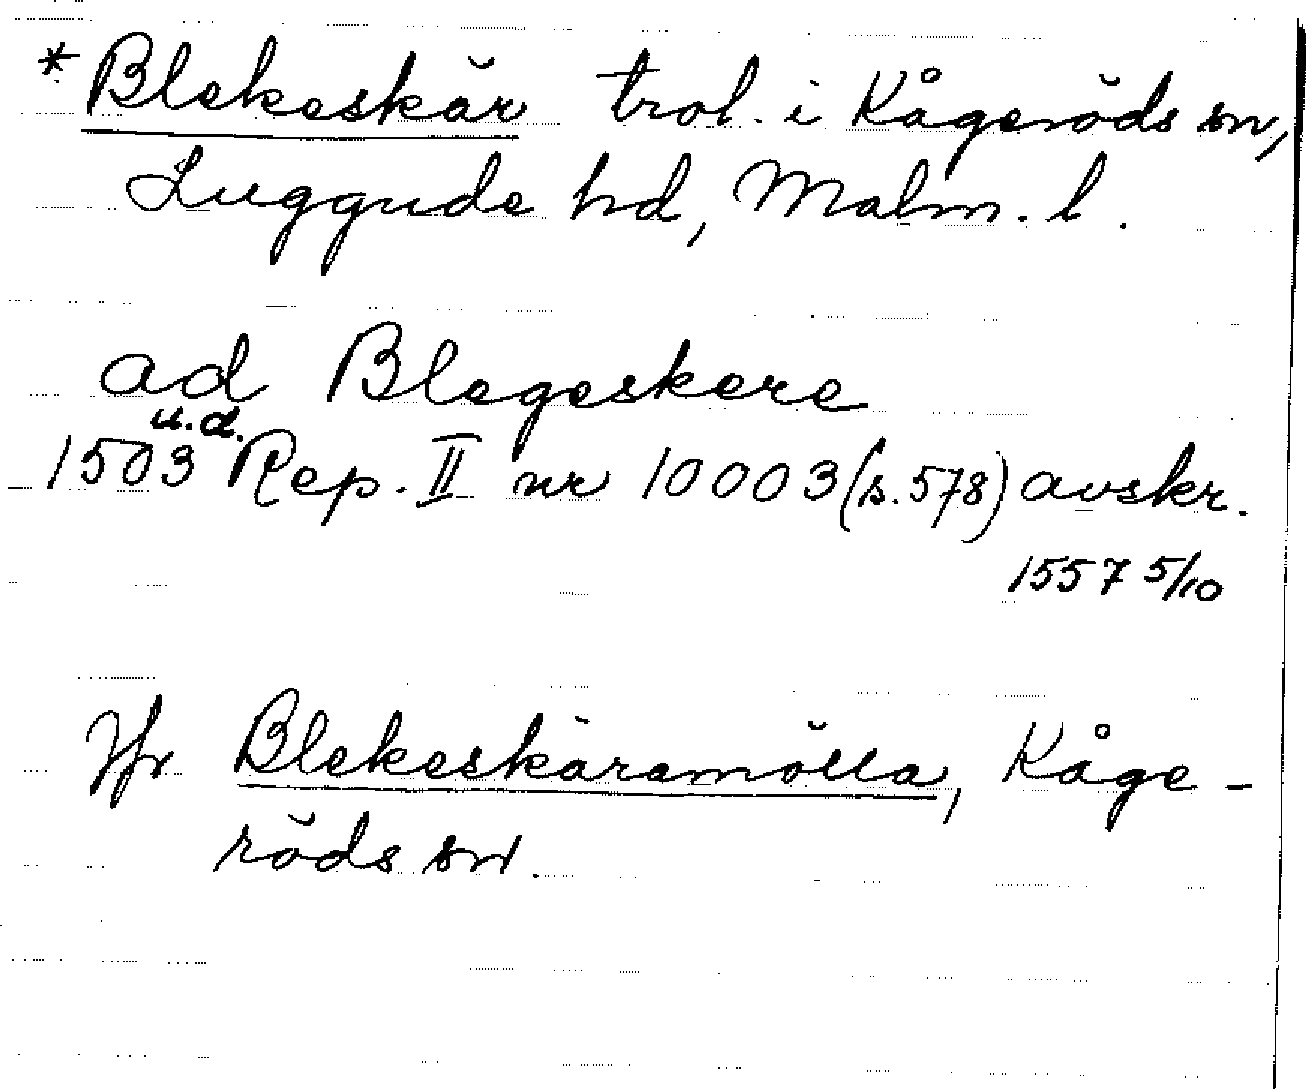 *Blekeskär trol. i Kågeröds sn,
Luggude hd, Malm. l.
ad Blegeskere
1503 u.d. Rep. II nr 10003 (s. 578) avskr.
1557 5/10
Jfr Blekeskäramölla, Kåge-
röds sn.